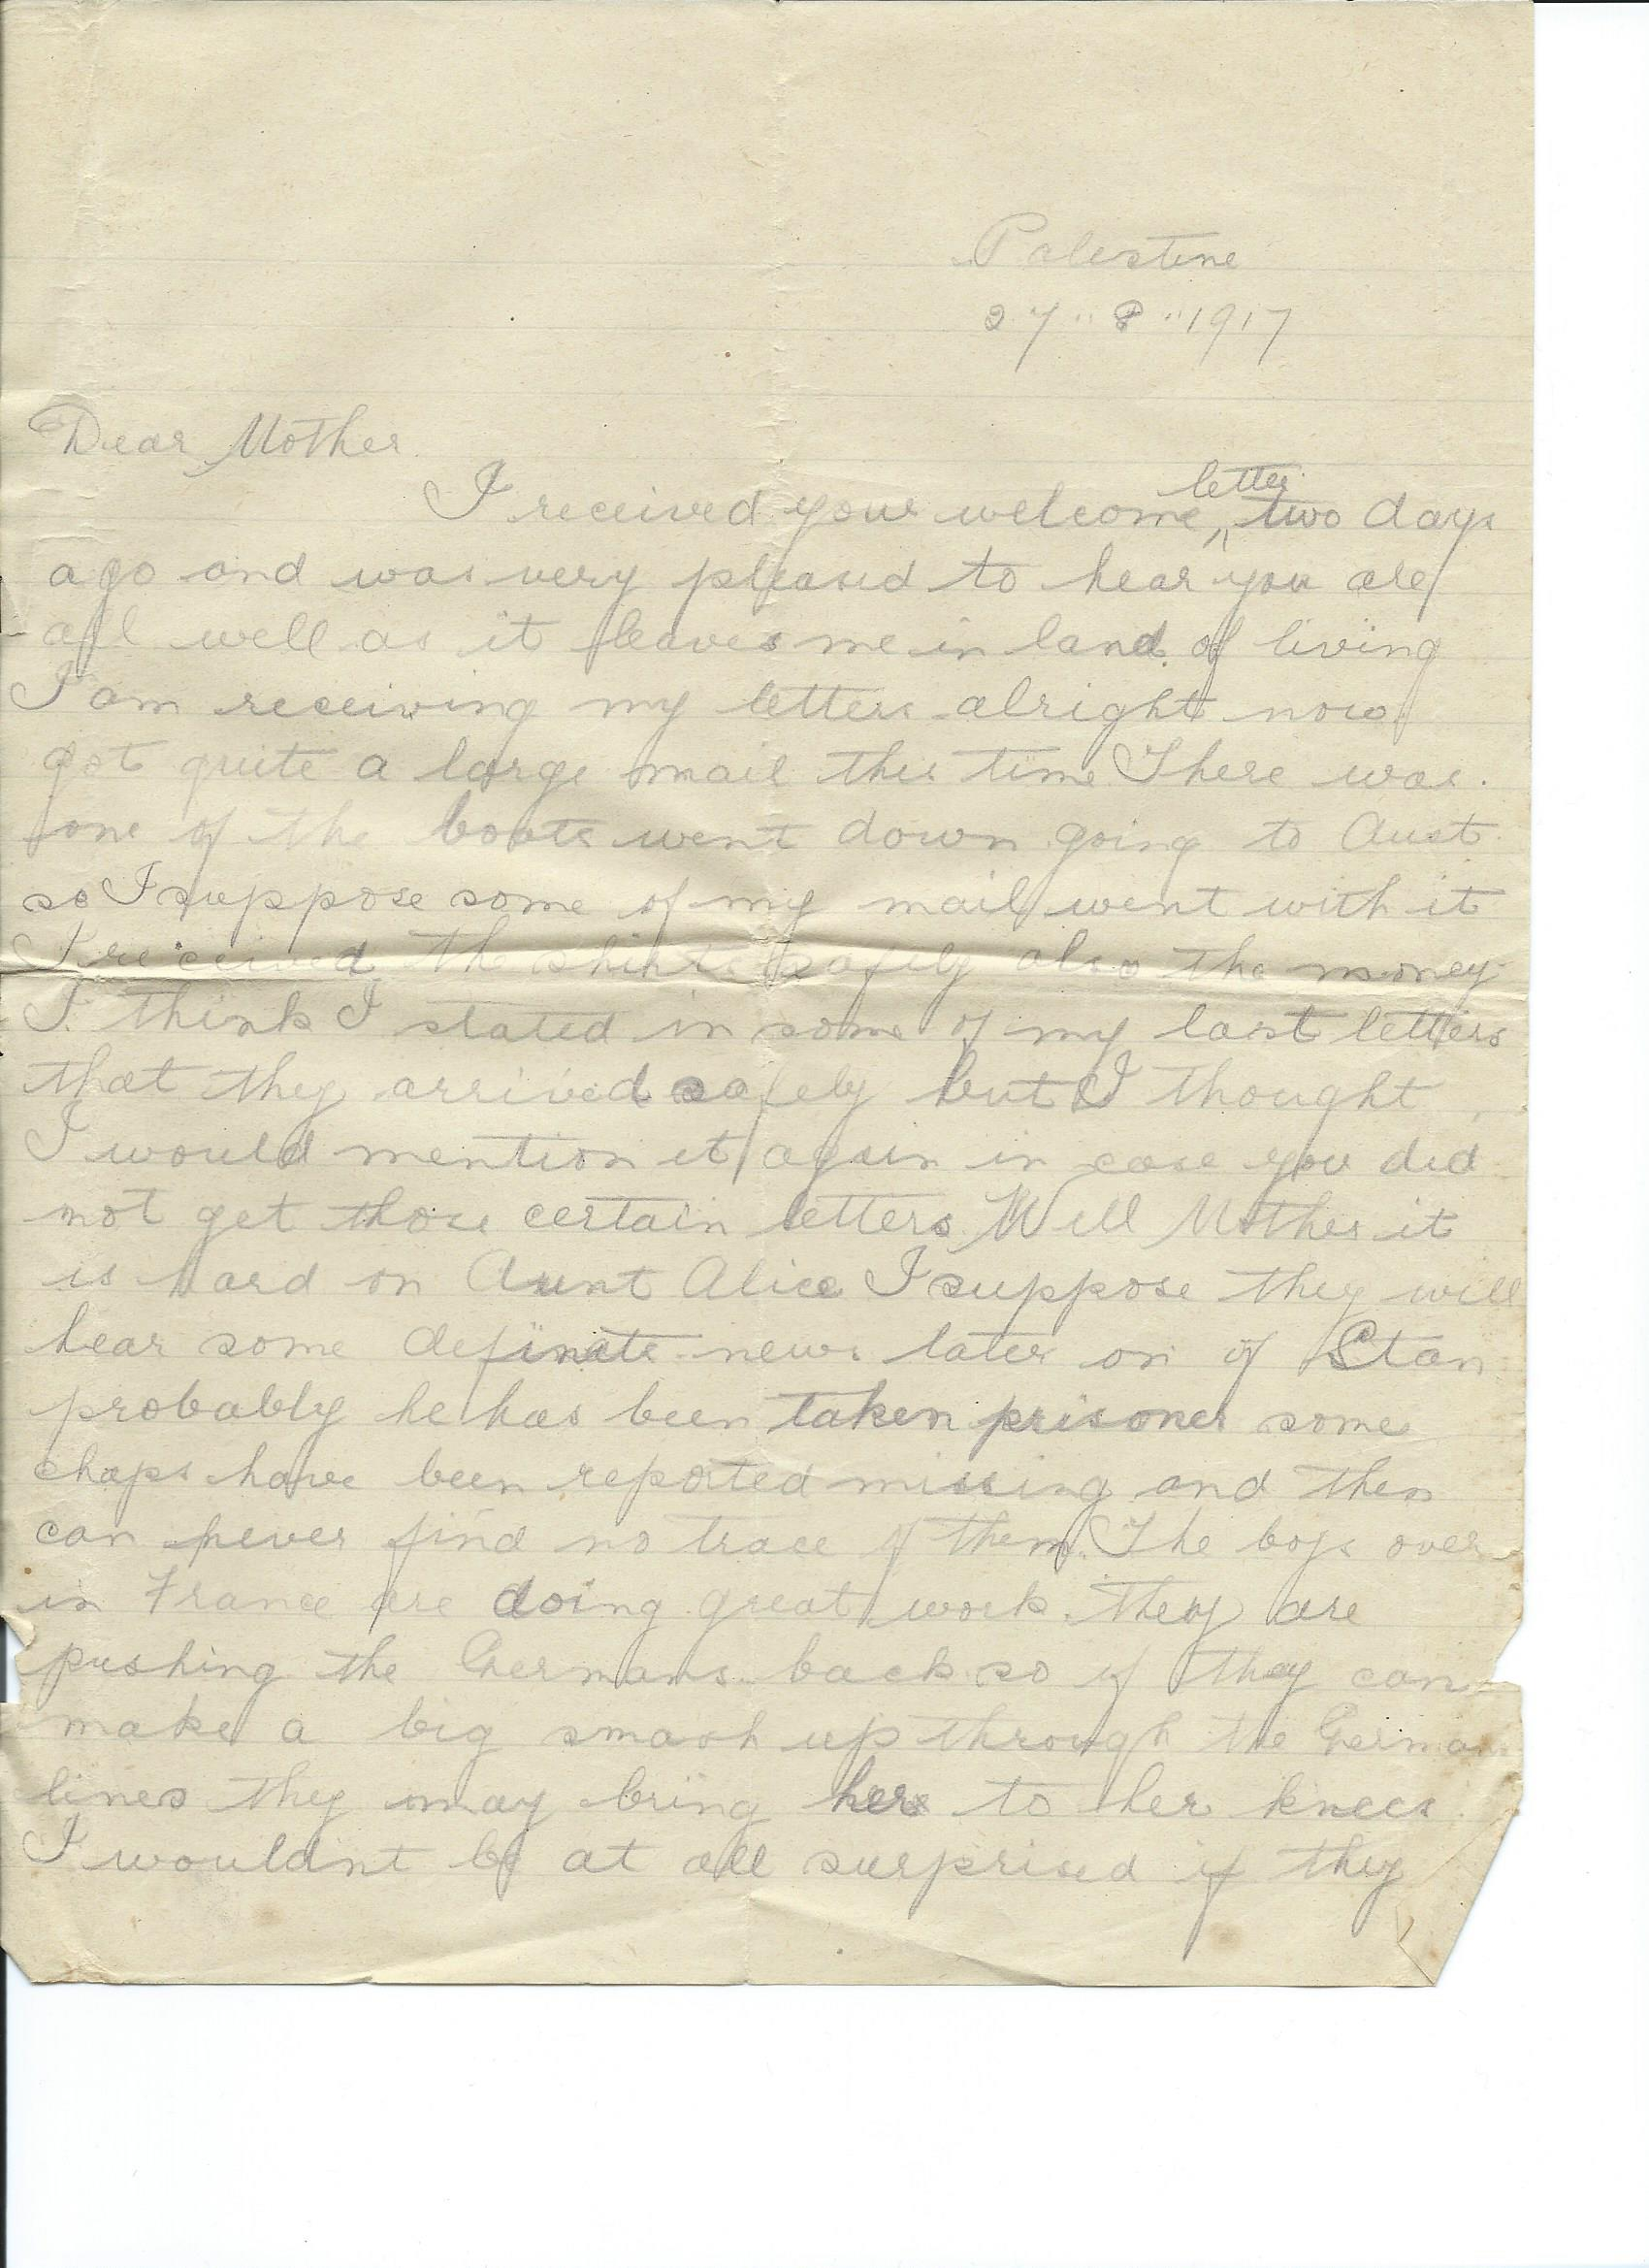 Palestine
27 " 8 " 1917
Dear Mother
letter
I received your welcome ^ two days
ago and was very pleased to hear you are
all well as it leaves me in land of living
I am receiving my letters alright now
got quite a large mail this time There was
one of the boats went down going to Aust
so I suppose some of my mail went with it
I received the shirts safely also the money
I think I stated in some of my last letters
that they arrived safely but I thought
I would mention it again in case you did
not get those certain letters Well Mother it
is hard on Aunt Alice I suppose they will
hear some definate news later on of Stan
probably he has been taken prisoner some
chaps have been reported missing and then
can never find no trace of them. The boys over
in France are doing great work they are
pushing the Germans back so if they can
make a big smash up through the German
lines they may bring here to her knees
I wouldnt be at all surprised if they